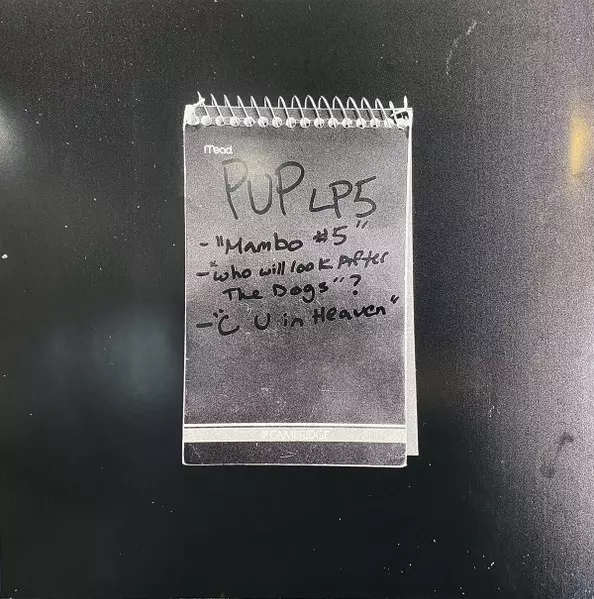 Mead
PUP LP5
- "Mambo #5"
- "Who will look After
The Dogs"?
- "C U in Heaven"
CAMBRIDGE